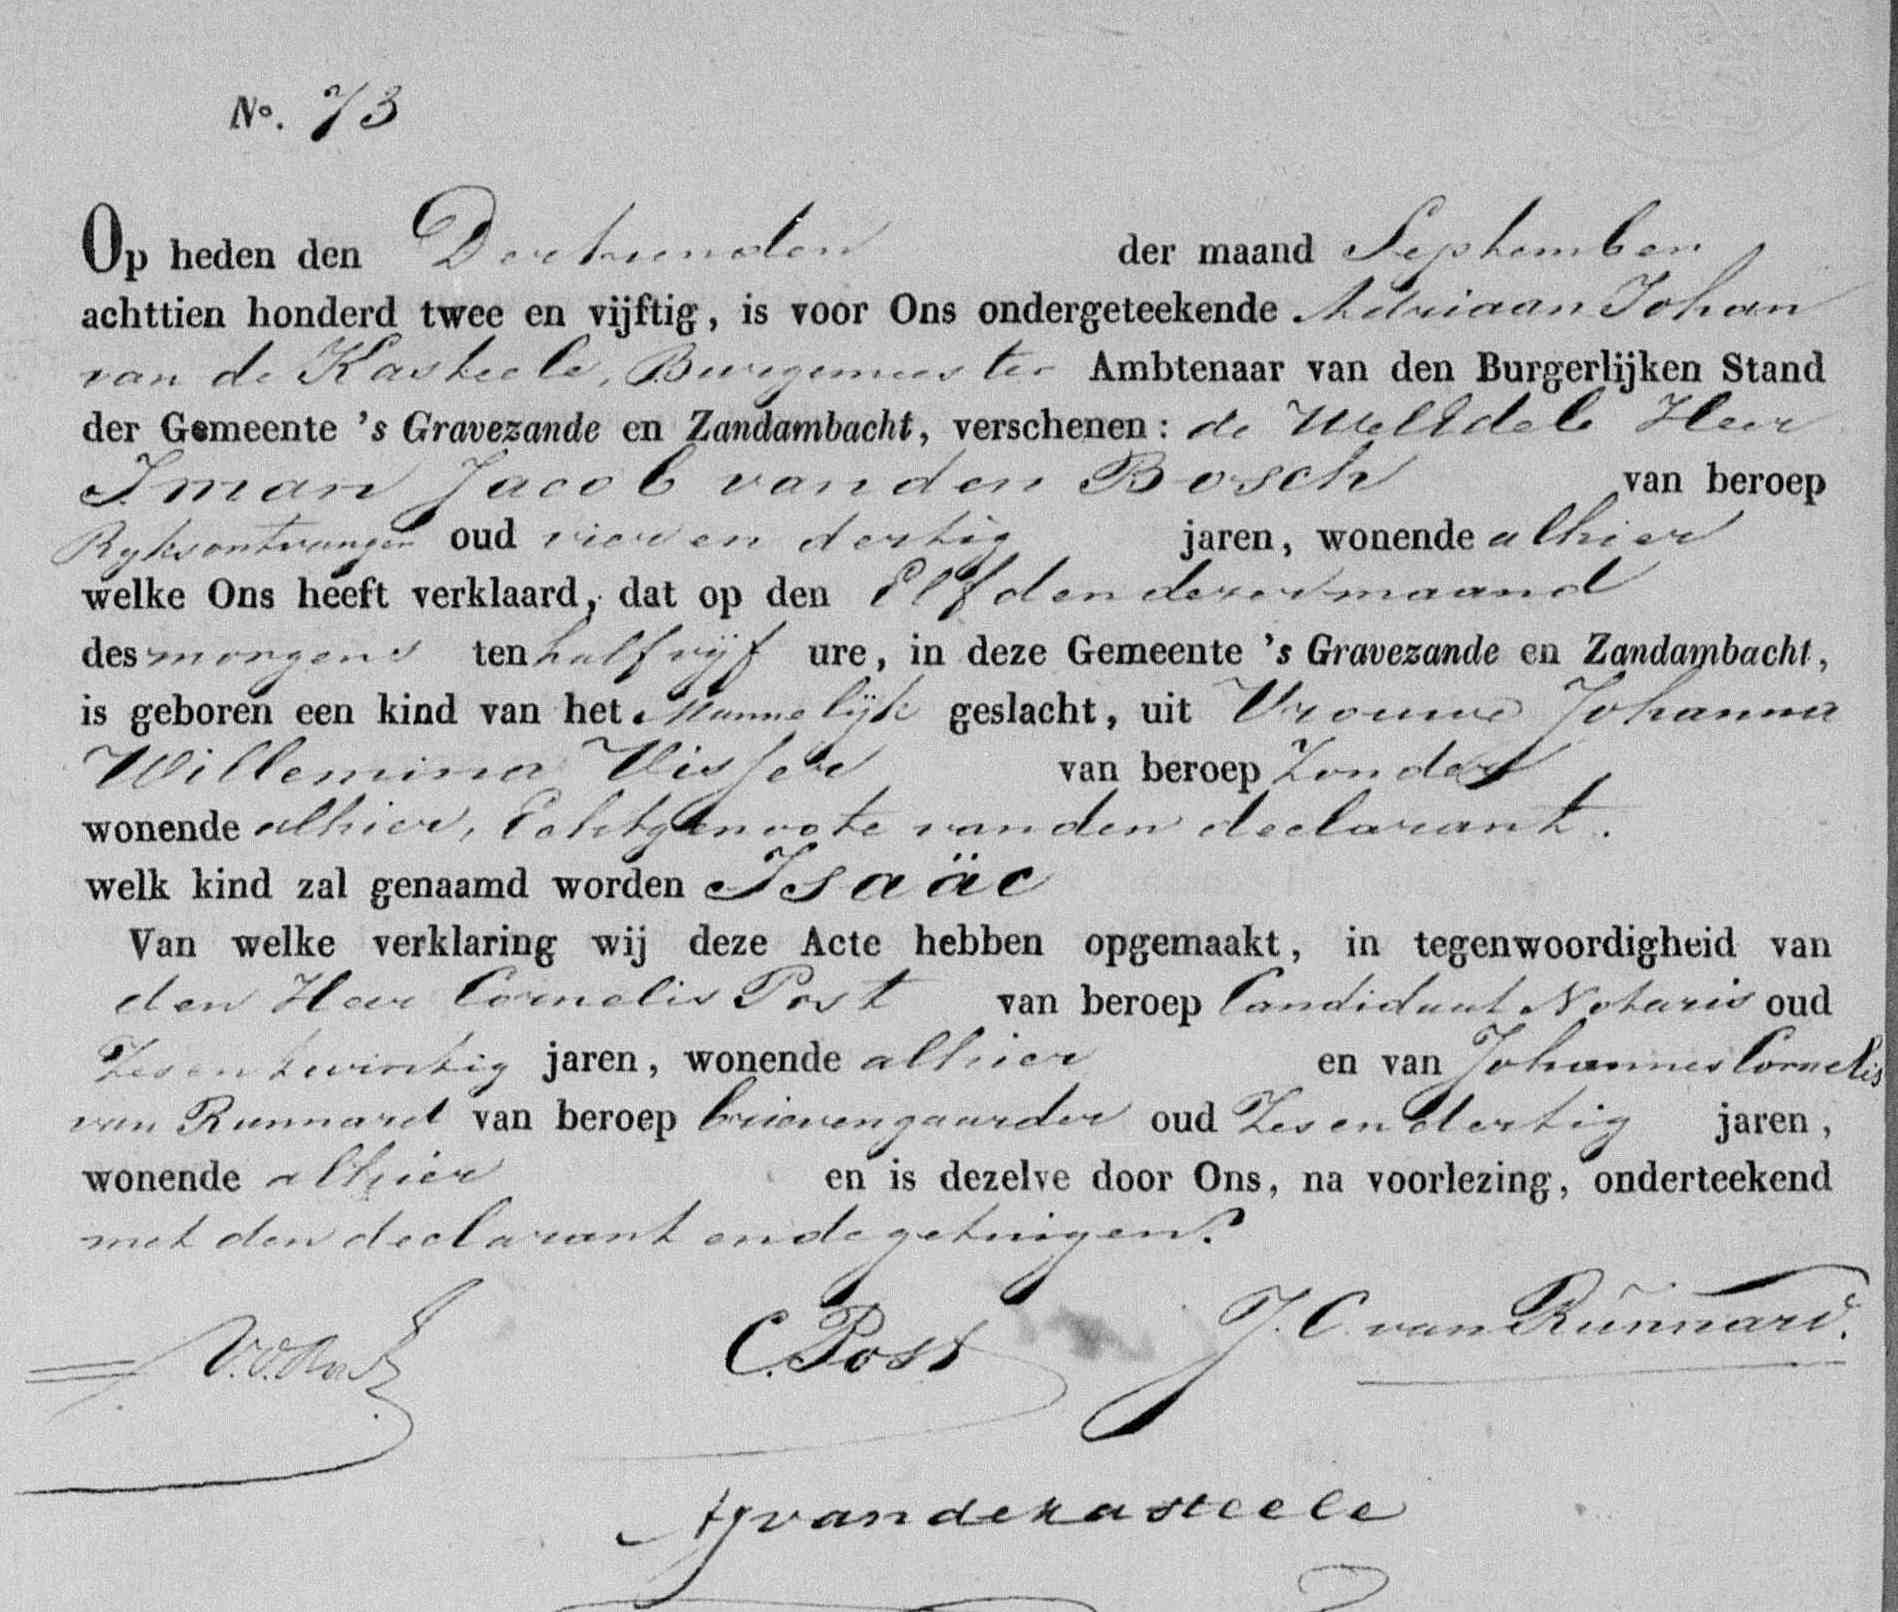 No. 73
Op heden den Dertienden der maand September
achttien honderd twee en vijftig, is voor Ons ondergeteekende Adriaan Johan
van de Kasteele, Burgemeester Ambtenaar van den Burgerlijken Stand
der Gemeente 's Gravezande en Zandambacht, verschenen: de WelEdele Heer
Iman Jacob van den Bosch van beroep
Ryksontvanger oud vier en dertig jaren, wonende alhier
welke Ons heeft verklaard, dat op den Elfden dezer maand
des morgens ten half vijf ure, in deze Gemeente 's Gravezande en Zandambacht,
is geboren een kind van het Mannelijk geslacht, uit Vrouwe Johanna
Willemina Visser van beroep Zonder
wonende alhier, Echtgenoote van den declarant.
welk kind zal genaamd worden Isaäc
Van welke verklaring wij deze Acte hebben opgemaakt, in tegenwoordigheid van
den Heer Cornelis Post van beroep Candidaat Notaris oud
Zes en twintig jaren, wonende alhier en van Johannes Cornelis
van Runnard van beroep brievengaarder oud Zes en dertig jaren,
wonende alhier en is dezelve door Ons, na voorlezing, onderteekend
met den declarant en de getuigen.
C. Post
J. C. van Runnard.
AJvandekasteele